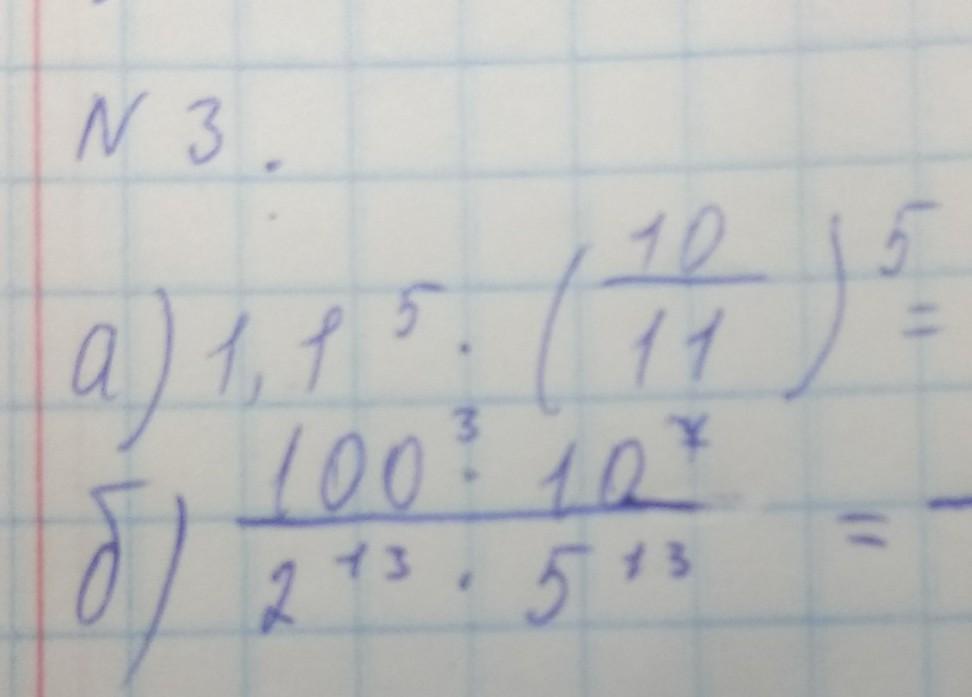 N 3.
а) 1,1⁵ · (10/11)⁵ =
б) 100³ · 10⁷ / 2¹³ · 5¹³ =